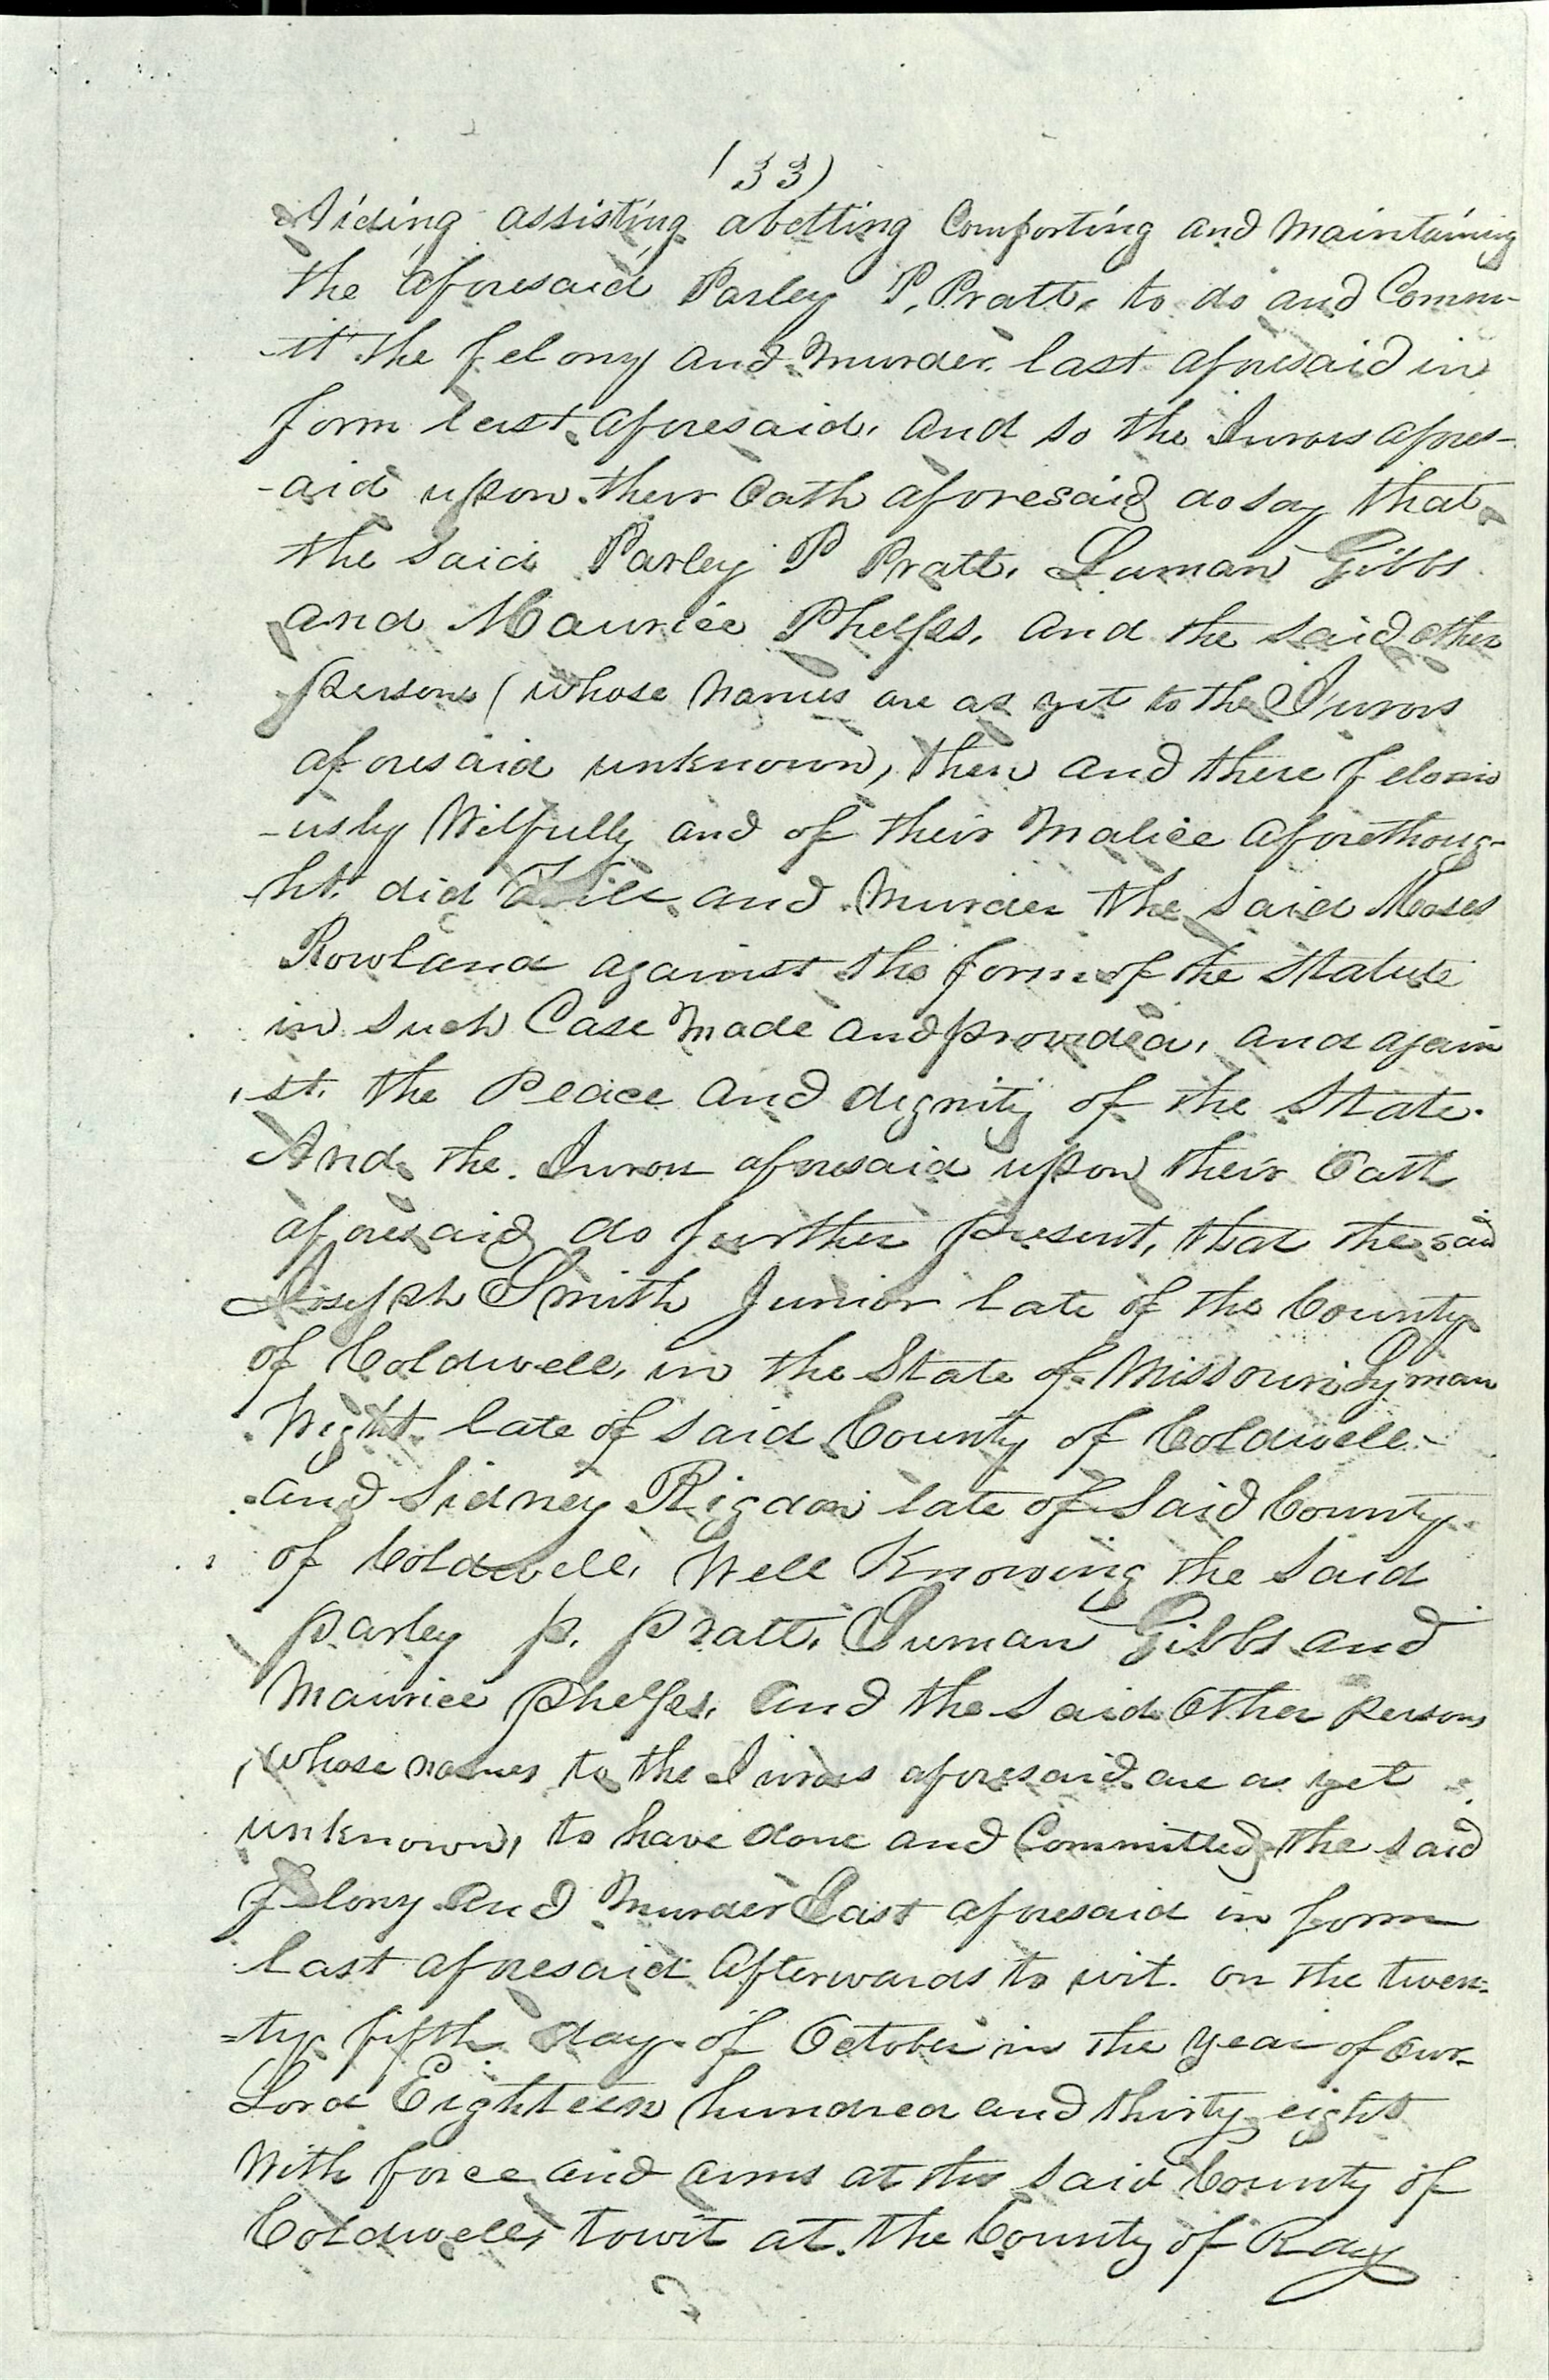 (33)
Aiding assisting abetting Comforting and Maintaining
the aforesaid Parley P. Pratt. to do and Comm-
-it the felony and Murder last aforesaid in
form last aforesaid. and so the Jurors afores-
-aid upon their Oath aforesaid do say that
the said Parley P Pratt. Luman Gibbs
and Maurice Phelps. and the said other
persons (whose Names are as yet to the Jurors
aforesaid unknown) then and there felonio
-usly Wilfully and of their Malice aforethoug-
-ht. did Kill and Murder the said Moses
Rowland against the form of the Statute
in such Case Made and provided, and again
-st. the Peace and dignity of the State.
And the Jurors aforesaid upon their Oath
aforesaid do further present, that the said
Joseph Smith Junior late of the County
of Coldwell, in the State of Missouri Lyman
Wight late of said County of Coldwell-
and Sidney Rigdon late of said County
of Coldwell, Well Knowing the said
parley p. pratt. Luman Gibbs and
Maurice phelps, and the said Other persons
(whose names to the Jurors aforesaid are as yet
unknown, to have done and Committed the said
Felony and Murder Last aforesaid in form
last aforesaid Afterwards to wit. on the twen=
=ty fifth day of October in the year of our
Lord Eighteen hundred and thirty eight
With force and arms at the said County of
Coldwell, towit at the County of Ray